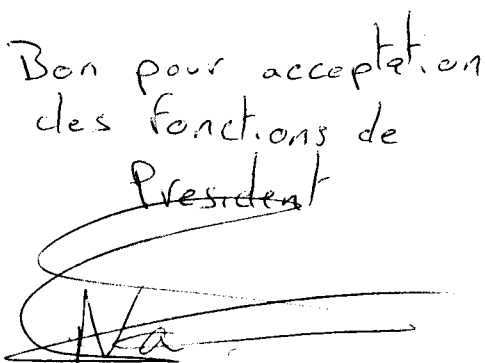 Bon pour acceptation
des fonctions de
President